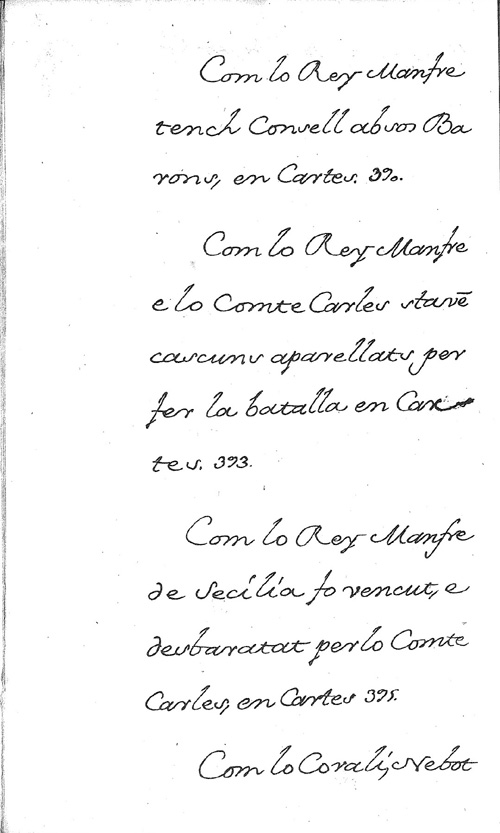 Com lo Rey Manfre
tench Consell ab sos Ba
rons, en Cartes. 390.
Com lo Rey Manfre
e lo Comte Carles stavē
cascuns aparellats per
fer la batalla en Car
tes. 393.
Com lo Rey Manfre
de Secília fo vencut, e
desbaratat per lo Comte
Carles, en Cartes 395.
Com lo Coralí, Nebot